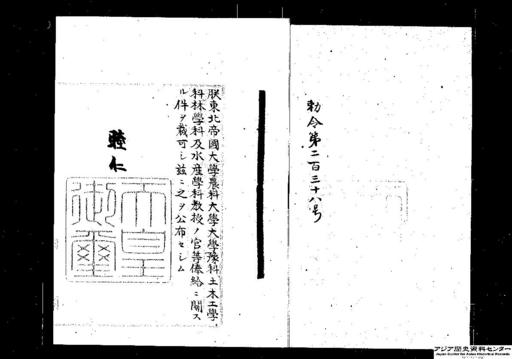 勅令第二百三十八号
朕東北帝國大學農科大學大學豫科土木工學
科林學科及水産學科教授ノ官等俸給ニ關ス
ル件ヲ裁可シ茲ニ之ヲ公布セシム
睦仁
天皇
御璽
アジア歴史資料センター
Japan Center for Asian Historical Records